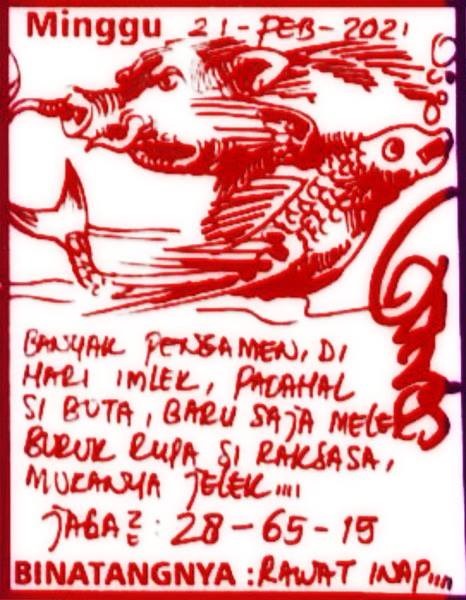 Minggu 21-PEB-2021
BANYAK PENGAMEN, DI
HARI IMLEK, PADAHAL
SI BUTA, BARU SAJA MELEK
BURUK RUPA SI RAKSASA,
MUKANYA JELEK....
JAGA2: 28-65-19
BINATANGNYA : RAWAT INAP....